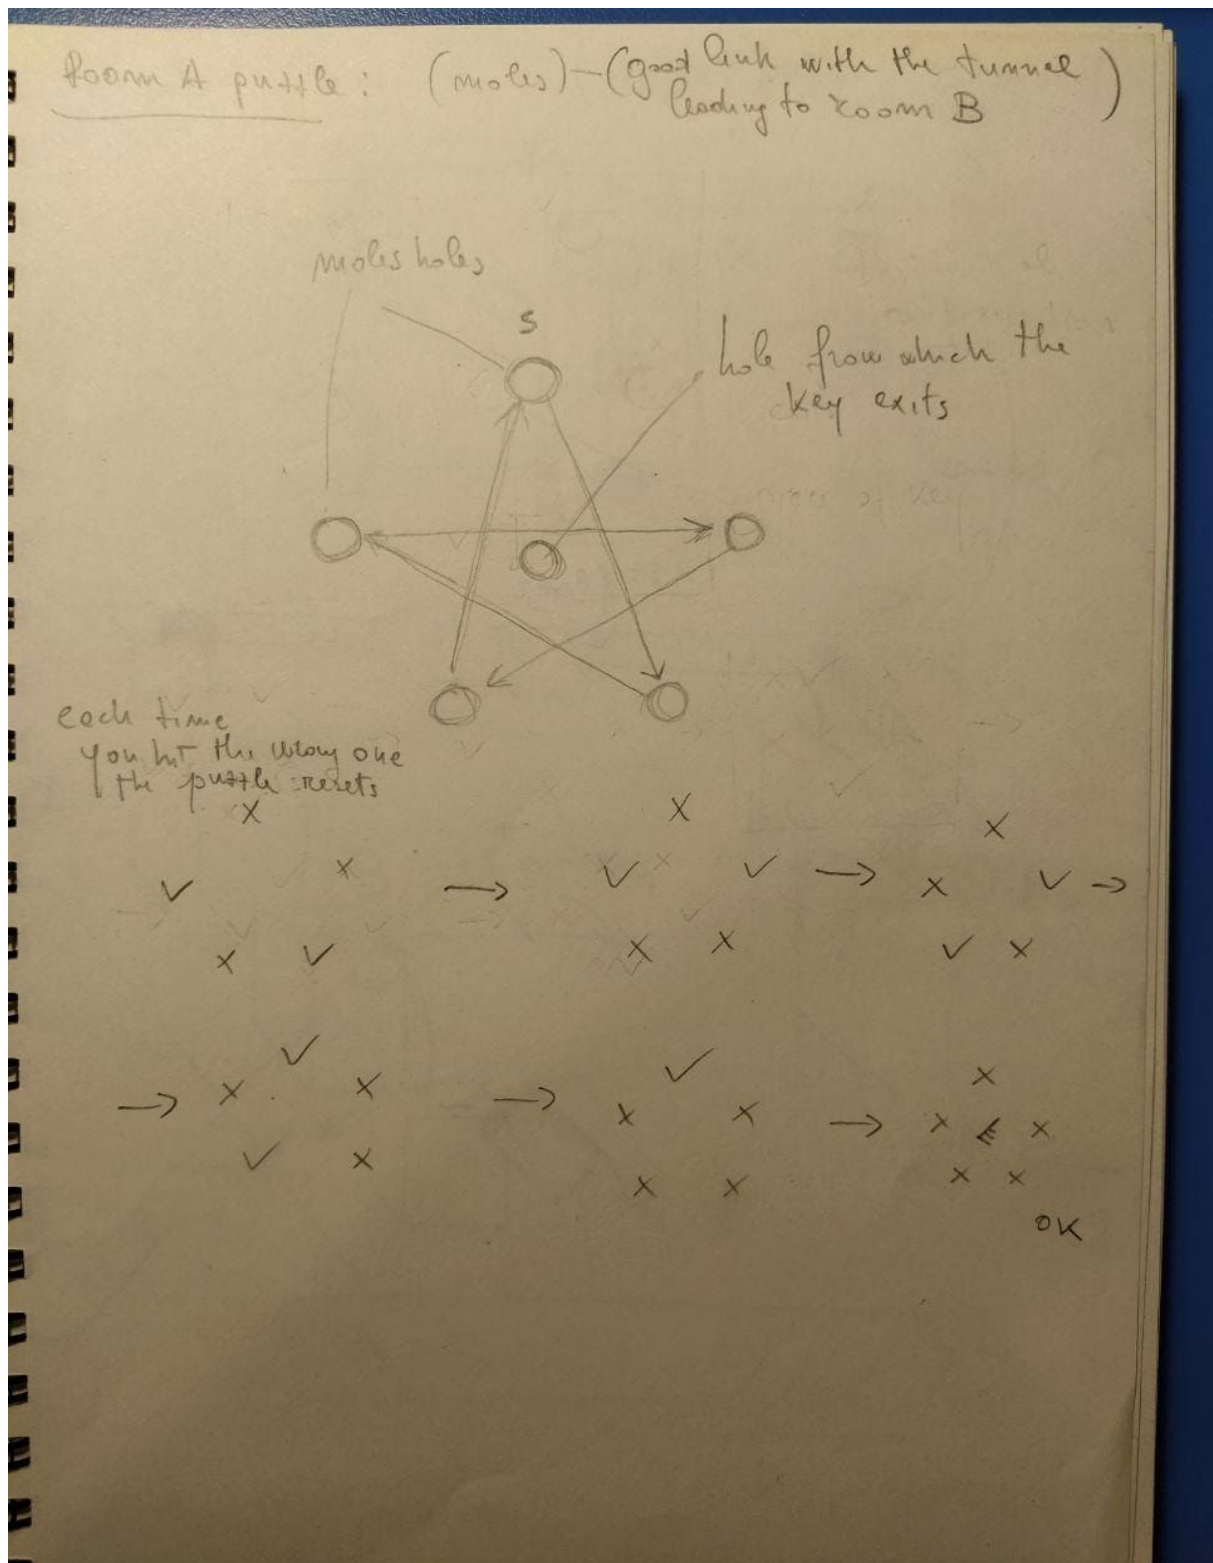 Room A puzzle: (moles) – (good link with the tunnel
leading to room B)
moles holes
S
hole from which the
key exits
each time
you hit the wrong one
the puzzle resets
X
✓ X → X ✓ ✓ → X X ✓ →
X ✓ X X ✓ X
→ ✓ X X → ✓ X X → X X X
✓ X X X X X
OK